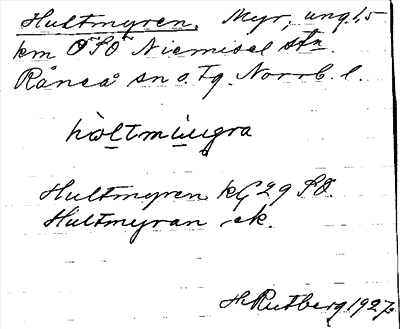 Hultmyren. Myr, ung. 1,5
km OSO Niemisel stn.
Råneå sn o. tg. Norrb. l.
Hultmyren kG 29 SO.
Hultmyran ek.
H. Rutberg 1927.